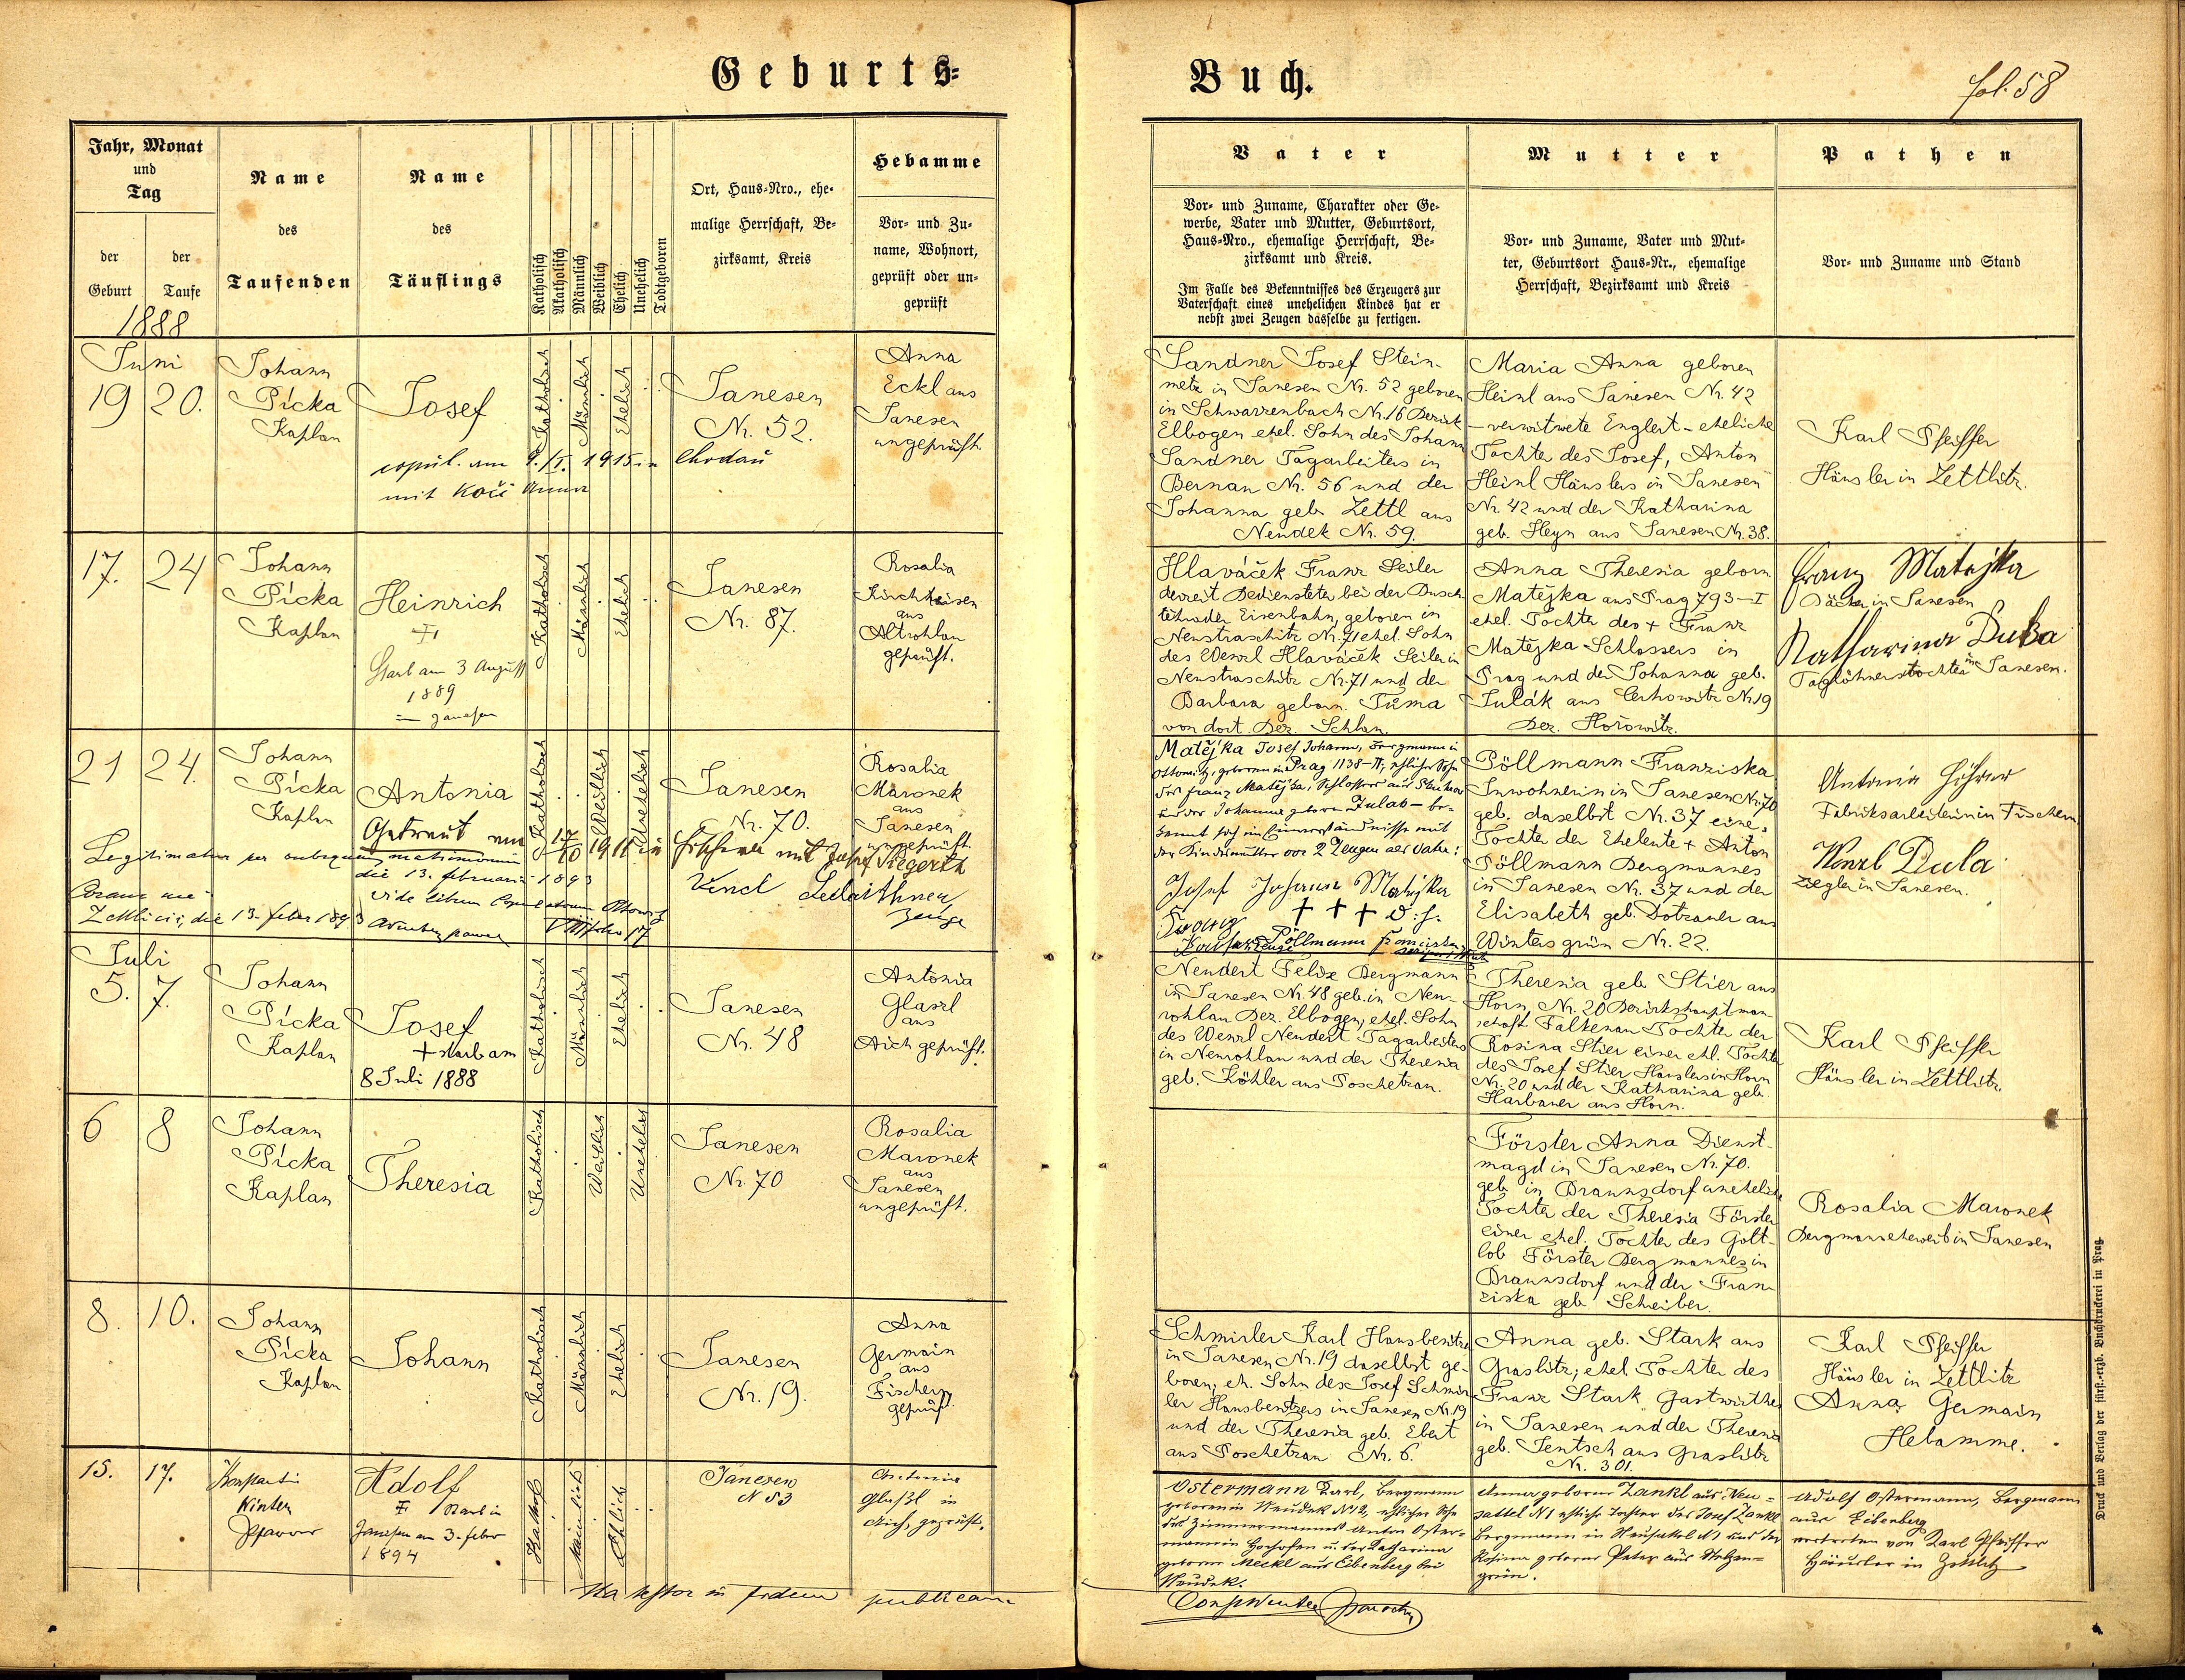 Geburts=
Buch.
fol. 58
Jahr, Monat
und
Tag
der
Geburt
der
Taufe
1888
Name
des
Taufenden
Name
des
Täuflings
Katholisch
Akatholisch
Männlich
Weiblich
Ehelich
Unehelich
Todtgeboren
Ort, Haus-Nro., ehe-
malige Herrschaft, Be-
zirksamt, Kreis
Hebamme
Vor- und Zu-
name, Wohnort,
geprüft oder un-
geprüft
Vater
Vor- und Zuname, Charakter oder Ge-
werbe, Vater und Mutter, Geburtsort,
Haus-Nro., ehemalige Herrschaft, Be-
zirksamt und Kreis.
Im Falle des Bekenntnisses des Erzeugers zur
Vaterschaft eines unehelichen Kindes hat er
nebst zwei Zeugen dasselbe zu fertigen.
Mutter
Vor- und Zuname, Vater und Mut-
ter, Geburtsort Haus-Nr., ehemalige
Herrschaft, Bezirksamt und Kreis
Pathen
Vor- und Zuname und Stand
Juni
19 20.
Johann
Pícka
Kaplan
Josef
copul. am 9./I. 1915 in Chodau
mit Kočí Anna
Katholisch
Männlich
Ehelich
Janesen
Nr. 52.
Anna
Eckl aus
Janesen
ungeprüft.
Sandner Josef Stein-
metz in Janesen Nr. 52 geboren
in Schwarzenbach Nr. 16 Bezirk
Elbogen ehel. Sohn des Johann
Sandner Tagarbeiters in
Bernau Nr. 56 und der
Johanna geb. Zettl aus
Neudek Nr. 59.
Maria Anna geboren
Heinl aus Janesen Nr. 42
– verwitwete Englert – eheliche
Tochter des Josef, Anton
Heinl Häuslers in Janesen
Nr. 42 und der Katharina
geb. Heyn aus Janesen Nr. 38.
Karl Pfeiffer
Häusler in Zettlitz.
17. 24
Johann
Pícka
Kaplan
Heinrich
Starb am 3 August
1889
in Janesen
Katholisch
Männlich
Ehelich
Janesen
Nr. 87.
Rosalia
Kirchheisen
aus
Altrohlau
geprüft.
Hlaváček Franz Seiler
derzeit Bediensteter bei der Busch-
tehrader Eisenbahn, geboren in
Neustraschitz Nr. 71 ehel. Sohn
des Wenzl Hlaváček Seiler in
Neustraschitz Nr. 71 und der
Barbara geborn. Tůma
von dort Bez. Schlan.
Anna Theresia geborn
Matějka aus Prag 793–I
ehel. Tochter des + Franz
Matějka Schlossers in
Prag und der Johanna geb.
Julák aus Cerhowitz Nr. 19
Bez. Hořowitz.
Franz Matějka
Bäcker in Janesen
Katharina Duba
Taglöhnerstochter in Janesen.
21 24.
Johann
Pícka
Kaplan
Antonia
Getraut am 17/10 1911 in Fischern mit Josef Siegerth
Legitimata per subsequens matrimonium
die 13. februarii 1893
vide librum Copulatorum Ottowitz
Zettlicii, die 13. feber 1893
Katholisch
Weiblich
Unehelich
Janesen
Nr. 70.
Rosalia
Maronek
aus
Janesen
ungeprüft.
Zeuge
Matějka Josef Johann, Bergmann in
Ottowitz, geboren in Prag 1138–II, ehlicher Sohn
des Franz Matějka, Schlossers aus
und der Johanna geboren Julak – be-
kennt sich im Einverständnisse mit
der Kindesmutter vor 2 Zeugen als Vater:
Josef Johann Matějka
+ + +
Pöllmann Franziska
Zeuge
Pöllmann Franziska
Inwohnerin in Janesen Nr. 70
geb. daselbst Nr. 37 eine
Tochter der Eheleute + Anton
Pöllmann Bergmannes
in Janesen Nr. 37 und der
Elisabeth geb. Dotzauer aus
Wintersgrün Nr. 22.
Antonia
Fabriksarbeiterin in Fischern
Wenzl Dula
Ziegler in Janesen.
Juli
5. 7.
Johann
Pícka
Kaplan
Josef
+ starb am
8 Juli 1888
Katholisch
Männlich
Ehelich
Janesen
Nr. 48
Antonia
Glassl
aus
Aich geprüft.
Neudert Felix Bergmann
in Janesen Nr. 48 geb. in Neu-
rohlau Bez. Elbogen, ehel. Sohn
des Wenzl Neudert Tagarbeiters
in Neurohlau und der Theresia
geb. Köhler aus Poschetzau.
Theresia geb. Stier aus
Horn Nr. 20 Bezirkshauptman-
schaft Falkenau Tochter der
Rosina Stier einer ehl. Tochter
des Josef Stier Häuslers in Horn
Nr. 20 und der Katharina geb.
Harbauer aus Horn.
Karl Pfeiffer
Häusler in Zettlitz.
6 8
Johann
Pícka
Kaplan
Theresia
Katholisch
Weiblich
Unehelich
Janesen
Nr. 70
Rosalia
Maronek
aus
Janesen
ungeprüft.
Förster Anna Dienst-
magd in Janesen Nr. 70.
geb. in Braunsdorf uneheliche
Tochter der Theresia Förster
einer ehel. Tochter des Gott-
lob Förster Bergmannes in
Braunsdorf und der Fran-
ziska geb. Schreiber.
Rosalia Maronek
Bergmanneheweib in Janesen
8. 10.
Johann
Pícka
Kaplan
Johann
Katholisch
Männlich
Ehelich
Janesen
Nr. 19.
Anna
Germain
aus
Fischern
geprüft.
Schmirler Karl Hausbesitzer
in Janesen Nr. 19 daselbst ge-
boren, eh. Sohn des Josef Schmir-
ler Hausbesitzers in Janesen Nr. 19
und der Theresia geb. Ebert
aus Poschetzau Nr. 6.
Anna geb. Stark aus
Graslitz, ehel. Tochter des
Franz Stark Gastwirthes
in Janesen und der Theresia
geb. Jentsch aus Graslitz
Nr. 301.
Karl Pfeiffer
Häusler in Zettlitz
Anna Germain
Hebamme.
15. 17.
Konstantin
Winter
Pfarrer
Adolf
Starb in
Janesen am 3. feber
1894
Kathol
männlich
Ehlich
Janesen
N 53
Antonia
Glaßl in
Aich, geprüft.
Ostermann Karl, Bergmann
geboren in Neudek N 12, ehlicher Sohn
des Zimmermannes Anton Oster-
mann in Hochofen u. der Katharina
geborene Meckl aus Eibenberg bei
Neudek.
Anna geborene Zankl aus Neu-
sattel N 1 ehliche Tochter des Josef Zankl
Bergmann in Neusattel N 1 und der
Rosina geborene Peter aus Stelzen-
grün.
Adolf Ostermann, Bergmann
aus Eibenberg
vertreten von Karl Pfeiffer
Häusler in Zettlitz
Ita testor in fidem publicam.
Const Winter parochus
Druck und Verlag der fürst.-erzb. Buchdruckerei in Prag.